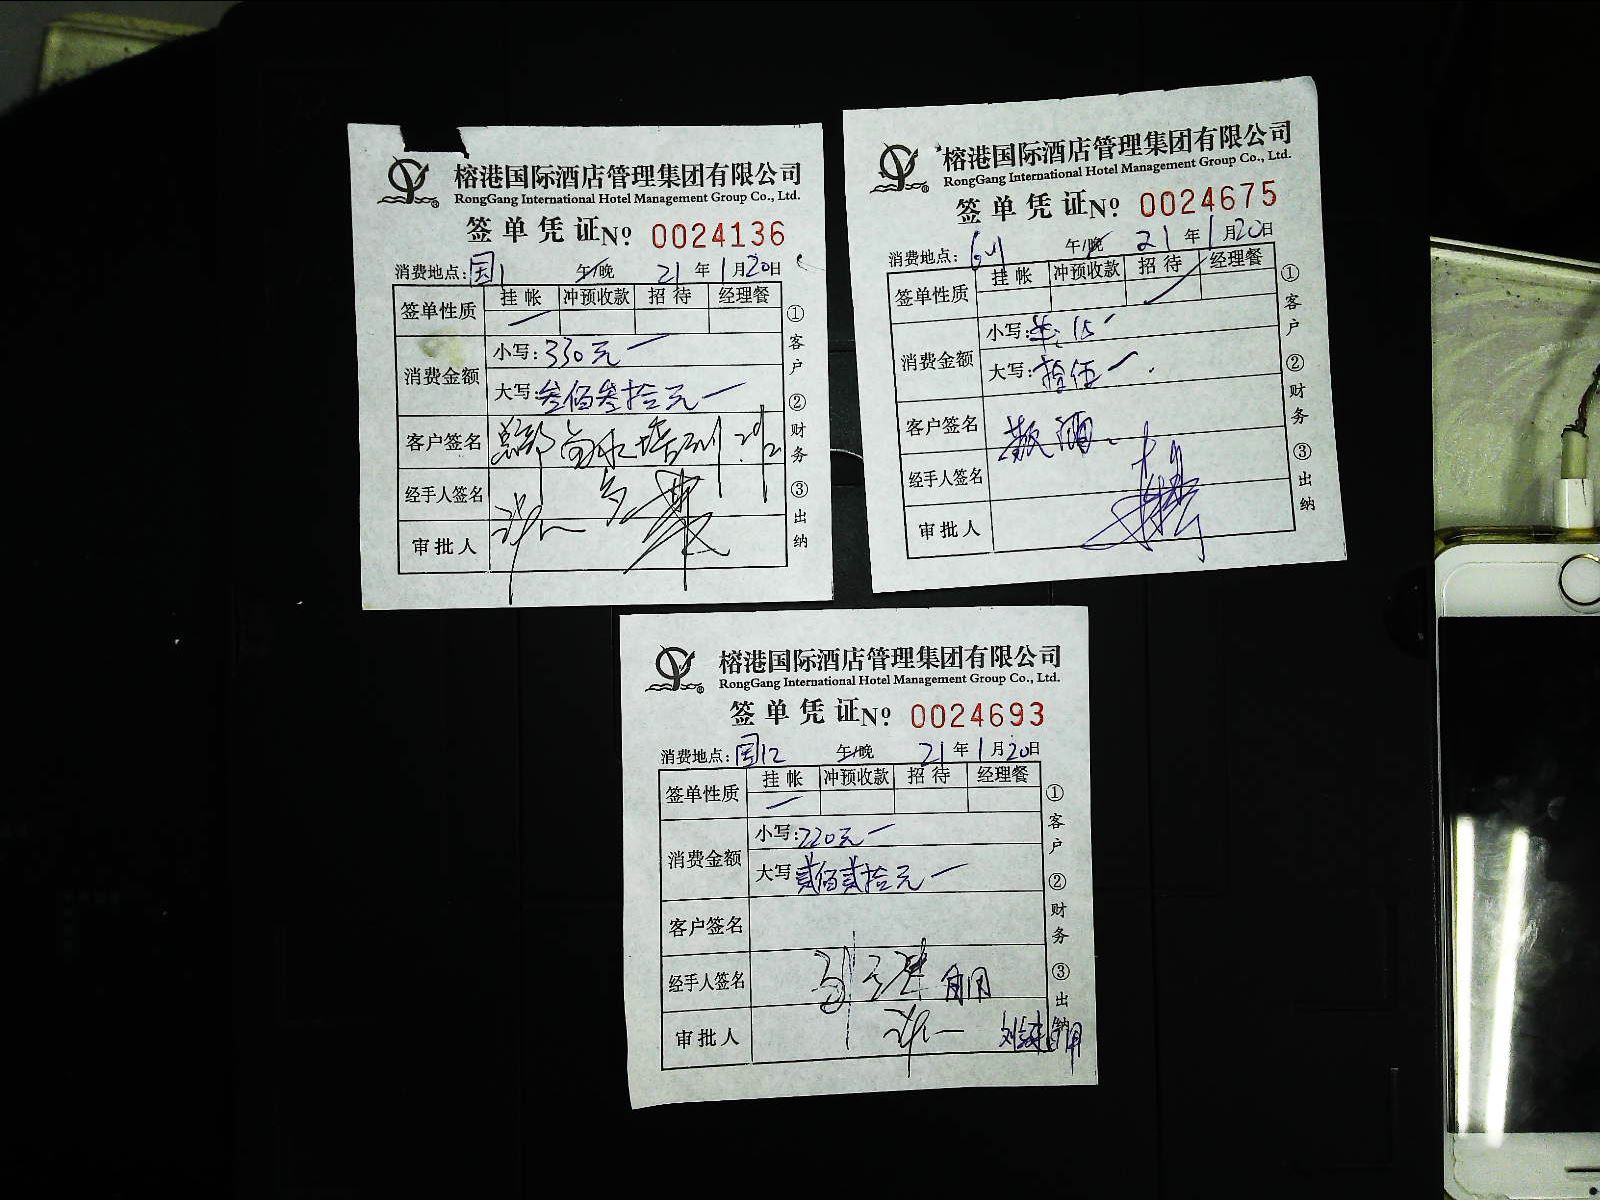 榕港国际酒店管理集团有限公司
RongGang International Hotel Management Group Co., Ltd.
签单凭证 Nº 0024136
消费地点: 国1 午/晚 21年1月20日
签单性质 挂帐 冲预收款 招待 经理餐
消费金额 小写: 330元
大写: 叁佰叁拾元
客户签名
经手人签名
审批人
①客户 ②财务 ③出纳
榕港国际酒店管理集团有限公司
RongGang International Hotel Management Group Co., Ltd.
签单凭证 Nº 0024675
消费地点: 午/晚 21年1月20日
签单性质 挂帐 冲预收款 招待 经理餐
消费金额 小写: 15
大写: 拾伍
客户签名 散酒
经手人签名
审批人
①客户 ②财务 ③出纳
榕港国际酒店管理集团有限公司
RongGang International Hotel Management Group Co., Ltd.
签单凭证 Nº 0024693
消费地点: 国12 午/晚 21年1月20日
签单性质 挂帐 冲预收款 招待 经理餐
消费金额 小写: 220元
大写 贰佰贰拾元
客户签名
经手人签名
审批人
①客户 ②财务 ③出纳